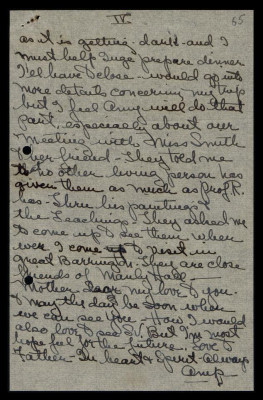 IV.
65
as it is getting dark - and I
must help Inge prepare dinner
I'll have to close - would go into
more details concerning my trip
but I feel Amy will do that
part, especially about our
Meeting with Miss Smith
& her friend - They told me
no other living person has
given them as much as Prof. R.
has - thru his paintings &
the Teachings. They asked me
to come up & see them when
ever I come up to visit in
great Barrington - They are close
friends of Manly Hall -
Mother dear my love to you
& may the day be soon when
we can see you - How I would
also love to see Sv. But I'm most
hopeful for the future. Love to
Father - In heart & Spirit - Always